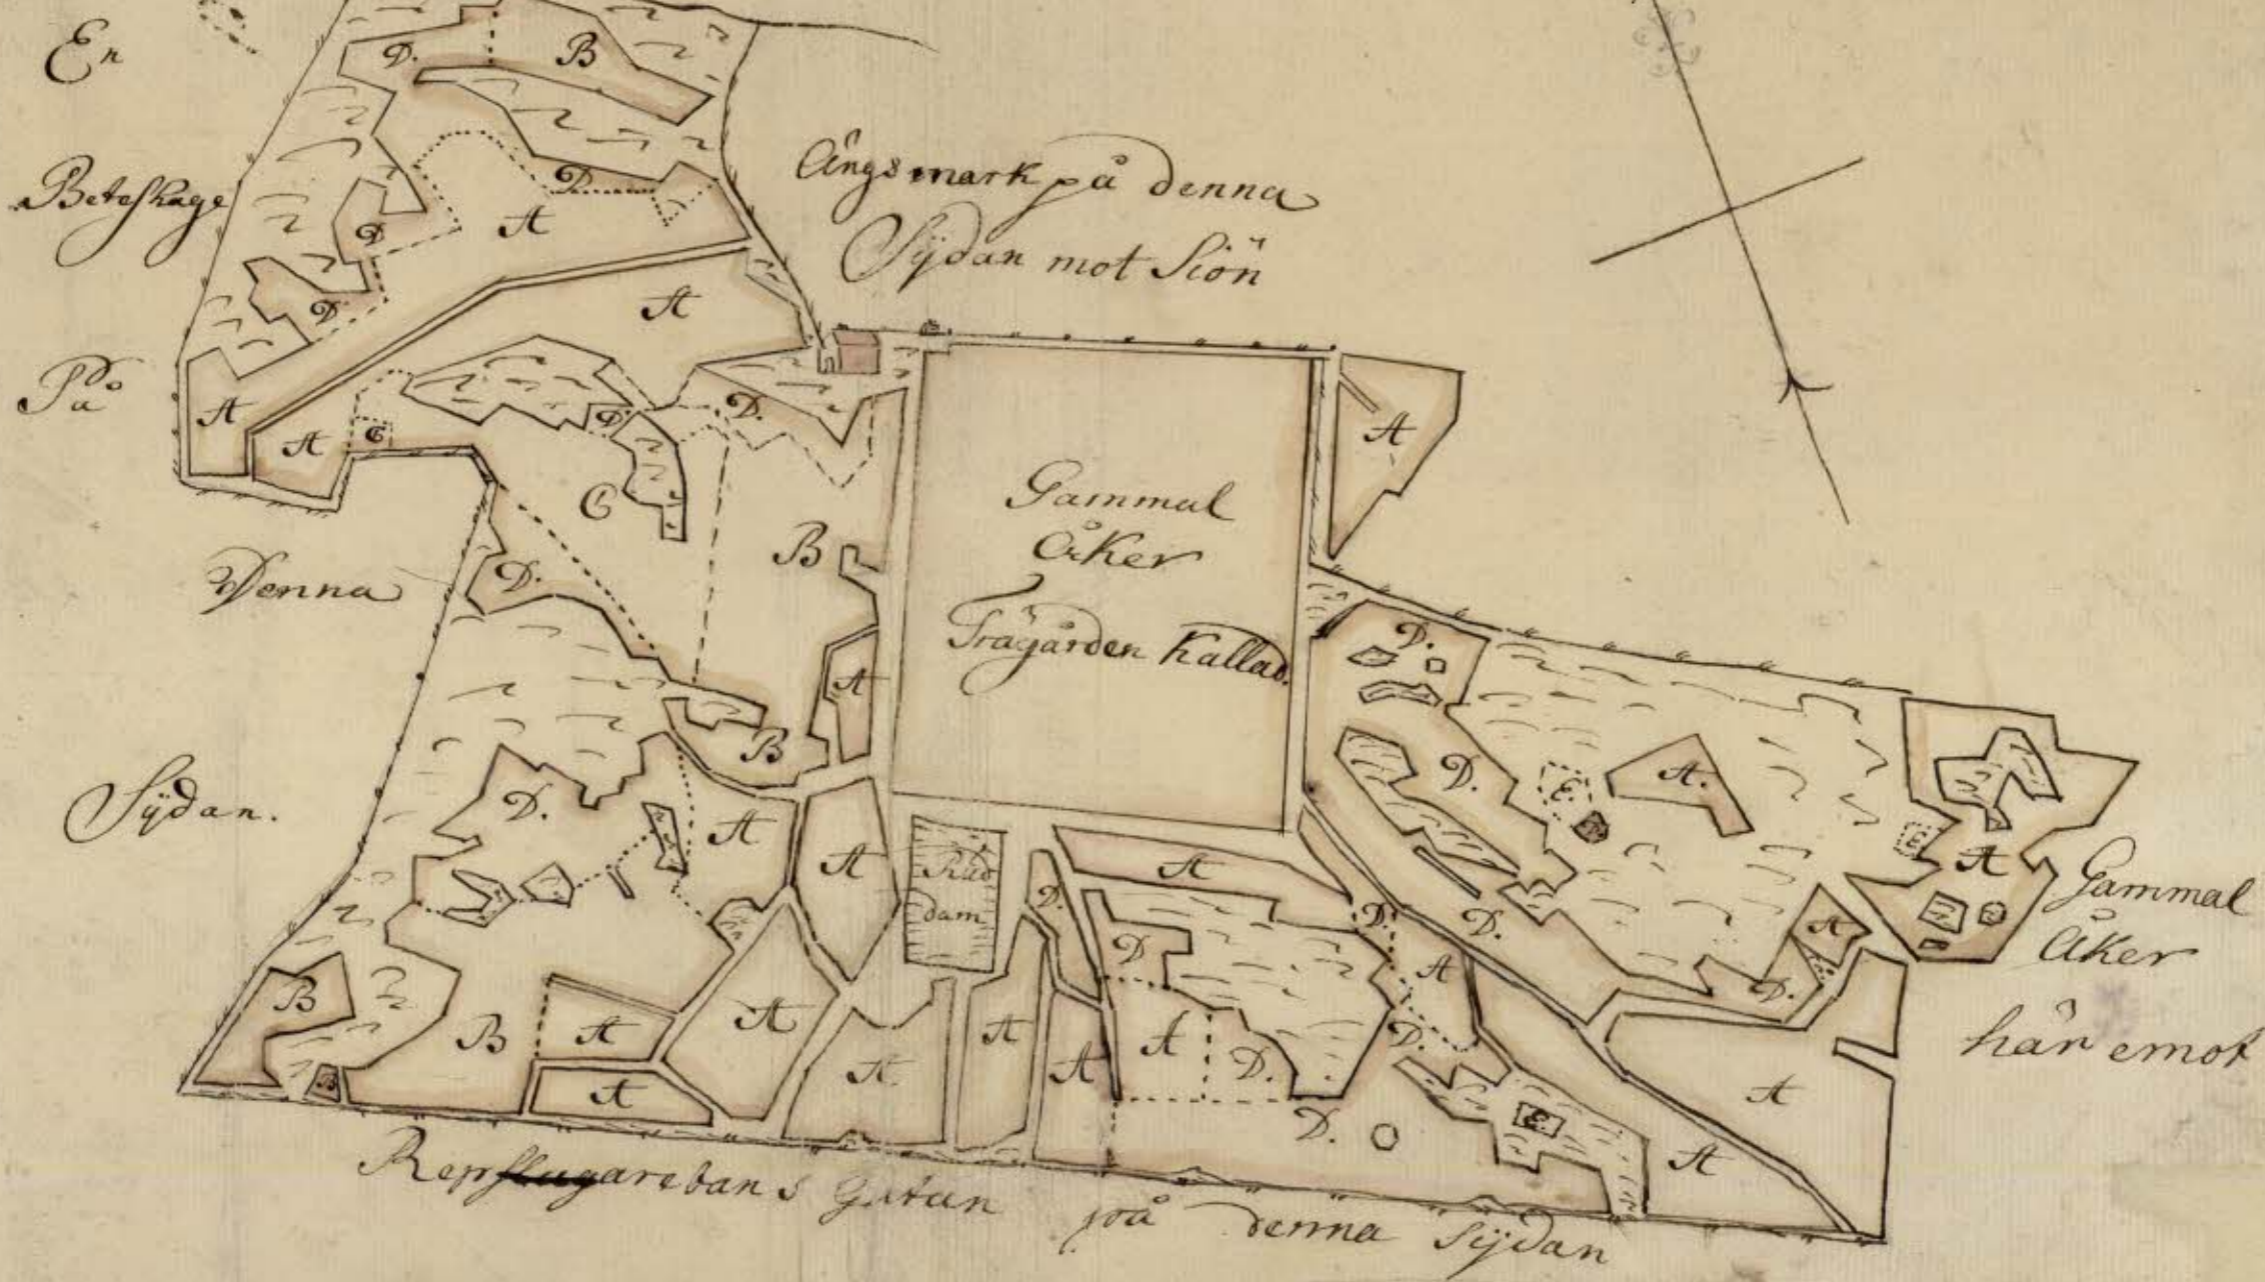 En
Beteshage
På
Denna
Sÿdan.
Ängsmark på denna
Sÿdan mot Siön
Gammal
Åker
Trägården Kallad.
Rud
dam
Gammal
Åker
här emot
Repslagarebans Gatan på denna Sÿdan
D. B
D
A
D
D
A
A
A
C
D
D.
C
B
D.
A
A
B
D.
A
A
B
B
A
A
B
A
A
A
A
D.
A
D
A
D.
D.
A
D.
D.
E.
A
D.
D.
E.
A.
D.
A
D.
E
A
A